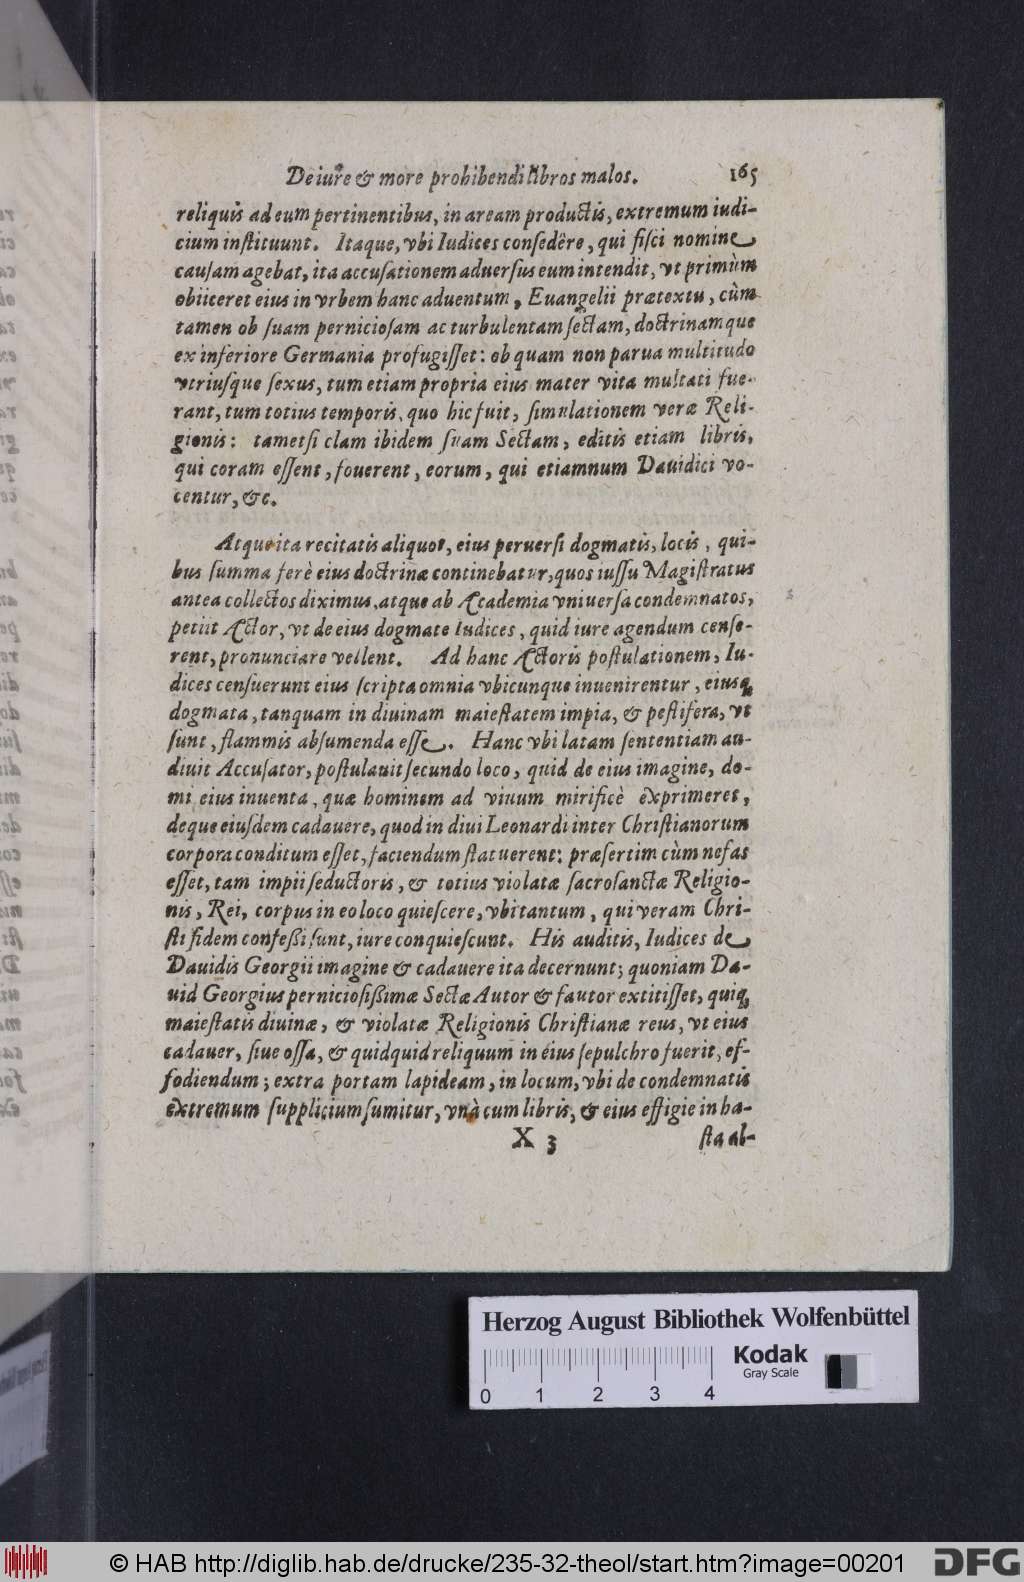 De iure & more prohibendi libros malos. 165
reliquis ad eum pertinentibus, in aream productis, extremum iudi-
cium instituunt. Itaque, vbi Iudices consedêre, qui fisci nomine
causam agebat, ita accusationem aduersus eum intendit, vt primùm
obiiceret eius in vrbem hanc aduentum, Euangelii prætextu, cùm
tamen ob suam perniciosam ac turbulentam sectam, doctrinamque
ex inferiore Germania profugisset: ob quam non parua multitudo
vtriusque sexus, tum etiam propria eius mater vita multati fue-
rant, tum totius temporis, quo hic fuit, simulationem veræ Reli-
gionis: tametsi clam ibidem suam Sectam, editis etiam libris,
qui coram essent, fouerent, eorum, qui etiamnum Dauidici vo-
centur, &c.
Atque ita recitatis aliquot, eius peruersi dogmatis, locis, qui-
bus summa ferè eius doctrinæ continebatur, quos iussu Magistratus
antea collectos diximus, atque ab Academia vniuersa condemnatos,
petiit Actor, vt de eius dogmate Iudices, quid iure agendum cense-
rent, pronunciare vellent. Ad hanc Actoris postulationem, Iu-
dices censuerunt eius scripta omnia vbicunque inuenirentur, eiusq;
dogmata, tanquam in diuinam maiestatem impia, & pestifera, vt
sunt, flammis absumenda esse. Hanc vbi latam sententiam au-
diuit Accusator, postulauit secundo loco, quid de eius imagine, do-
mi eius inuenta, quæ hominem ad viuum mirificè exprimeret,
deque eiusdem cadauere, quod in diui Leonardi inter Christianorum
corpora conditum esset, faciendum statuerent: præsertim cùm nefas
esset, tam impii seductoris, & totius violatæ sacrosanctæ Religio-
nis, Rei, corpus in eo loco quiescere, vbi tantum, qui veram Chri-
sti fidem confeßi sunt, iure conquiescunt. His auditis, Iudices de
Dauidis Georgii imagine & cadauere ita decernunt; quoniam Da-
uid Georgius perniciosißimæ Sectæ Autor & fautor extitisset, quiq;
maiestatis diuinæ, & violatæ Religionis Christianæ reus, vt eius
cadauer, siue ossa, & quidquid reliquum in eius sepulchro fuerit, ef-
fodiendum; extra portam lapideam, in locum, vbi de condemnatis
extremum supplicium sumitur, vnà cum libris, & eius effigie in ha-
X 3 sta al-
Herzog August Bibliothek Wolfenbüttel
Kodak
Gray Scale
0 1 2 3 4
© HAB http://diglib.hab.de/drucke/235-32-theol/start.htm?image=00201
DFG